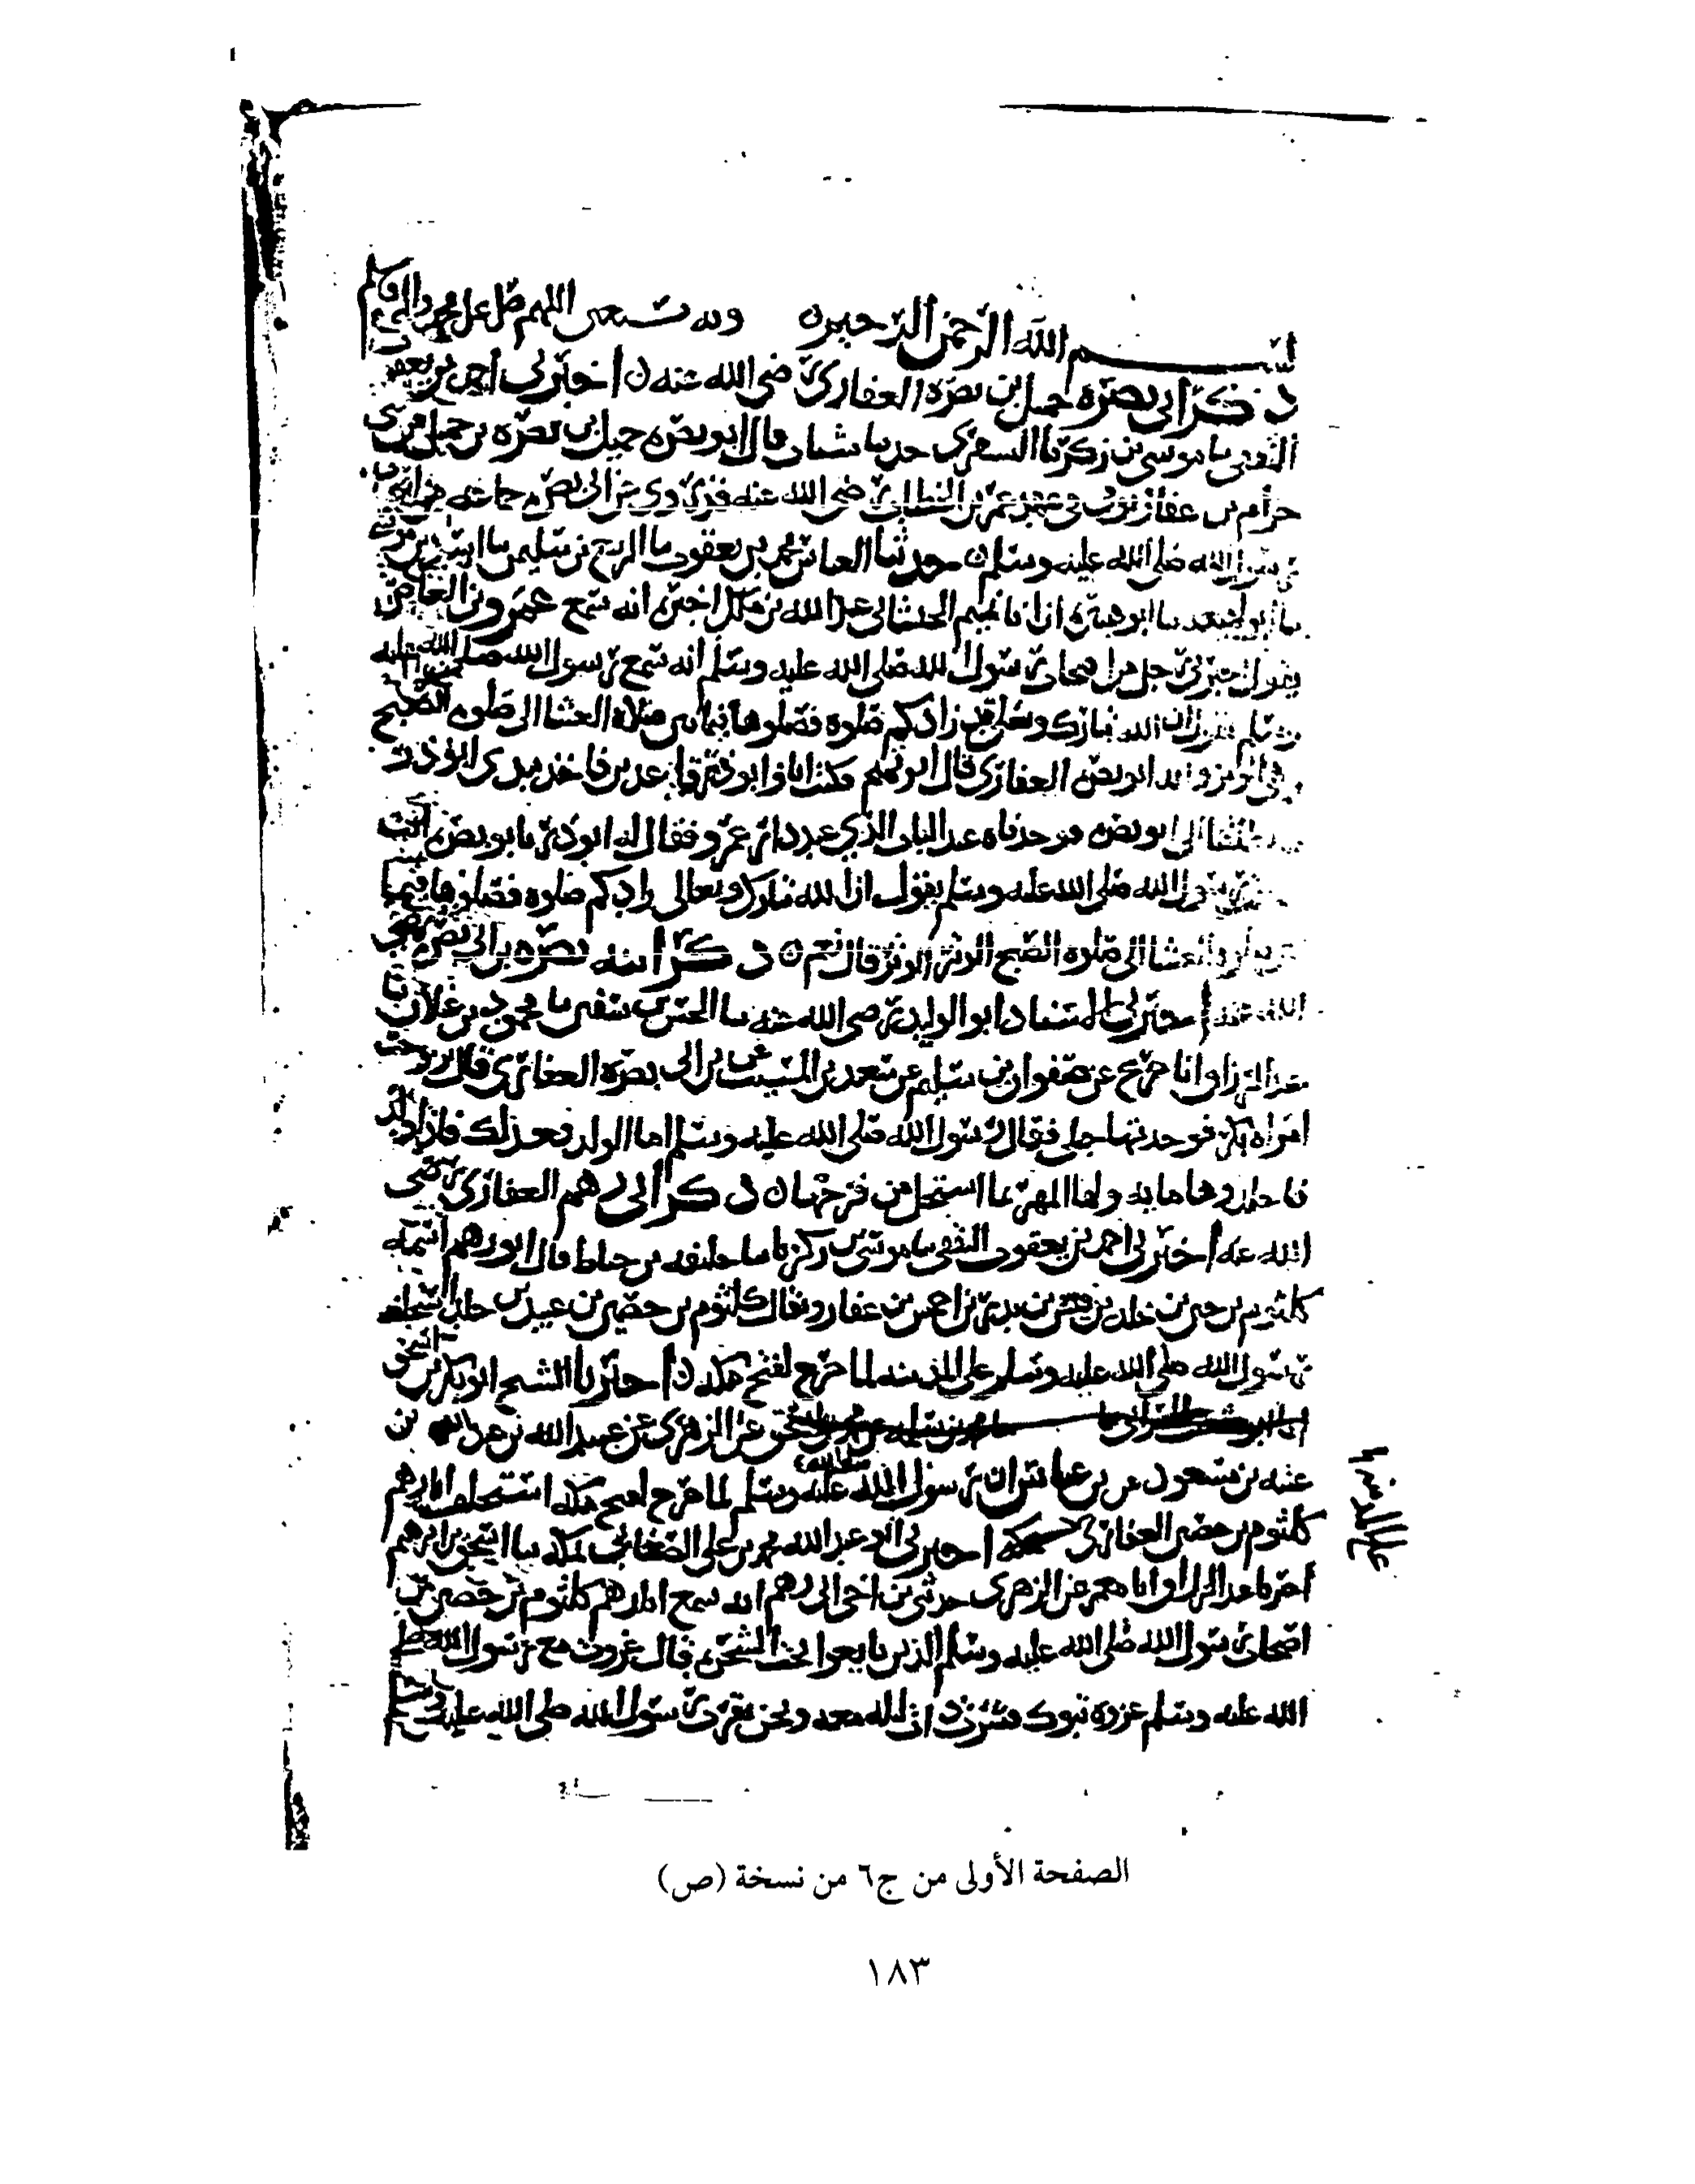 بسم الله الرحمن الرحيم وبه نستعين اللهم صل على محمد واله وسلم
ذكر ابي بصره جميل بن بصره الغفاري رضي الله عنه اخبرني احمد بن يعقوب
الثقفي ما موسى بن زكريا التستري حدثنا شباب قال ابو بصره جميل بن بصره بن
حرام بن غفار توفي في عهد عمر بن الخطاب رضي الله عنه فقد روى عن ابي بصره جماعه من اصحاب
رسول الله صلى الله عليه وسلم حدثنا ابو العباس محمد بن يعقوب ما الربيع بن سليمن ما اسد بن موسى
ما ابن لهيعه ما ابن هبيره ان ابا تميم الجيشاني عبد الله بن ملك اخبره انه سمع عمرو بن العاص
يقول اخبرني رجل من اصحاب رسول الله صلى الله عليه وسلم انه سمع رسول الله صلى الله عليه
وسلم يقول ان الله تبارك وتعالى قد زادكم صلوه فصلوها فيما بين صلاه العشا الى صلوه الصبح
ابو بصره الغفاري قال ابو تميم فكنت انا وابو ذر قاعدين فاخذ بيدي ابو ذر
فانطلقنا الى ابو بصره فوجدناه عند الباب الذي عند دار عمرو فقال له ابو ذر يا با بصره انت
سمعت رسول الله صلى الله عليه وسلم يقول ان الله تبارك وتعالى زادكم صلوه فصلوها فيما
بين صلوه العشا الى صلوه الصبح الوتر الوتر قال نعم ذكر ابنه بصره بن ابي بصره رضي
الله عنه اخبرني الاستاد ابو الوليد رضي الله عنه ما الحسن بن سفين ما محمود بن غيلان نا
عبد الرزاق انا جريج عن صفوان بن سليم عن سعيد بن المسيب عن بن ابي بصره الغفاري قال تزوجت
امراه بكرا فوجدتها حبلى فقال رسول الله صلى الله عليه وسلم اما الولد فعبد لك فاذا ولدت
فاجلدوها مايه ولها المهر بما استحل من فرجها ذكر ابي رهم الغفاري رضي
الله عنه اخبرني احمد بن يعقوب الثقفي ما موسى بن زكريا ما خليفه بن خياط قال ابو رهم اسمه
كلثوم بن حصن بن خلد بن بن بدر بن احمس بن غفار ويقال كلثوم بن حصين بن عبيد بن خلد استخلفه
رسول الله صلى الله عليه وسلم على المدينه لما خرج لفتح مكه اخبرنا الشيخ ابو بكر بن اسحق
عن الزهري عن عبيد الله بن عبد الله بن
عتبه بن مسعود عن بن عباس ان رسول الله صلى الله عليه وسلم لما خرج لفتح مكه استخلف ابا رهم
كلثوم بن حصين الغفاري اخبرني ابو عبد الله محمد بن علي الصغاني بمكه ما اسحق بن ابرهيم
اخبرنا عبد الرزاق انا معمر عن الزهري حدثني بن اخي ابي رهم انه سمع ابا رهم كلثوم بن حصين من
اصحاب رسول الله صلى الله عليه وسلم الذين بايعوا تحت الشجره قال غزوت مع رسول الله صلى
الله عليه وسلم غزوه تبوك معه ونحن بقرب رسول الله صلى الله عليه وسلم
على المدينه
الصفحة الأولى من ج٦ من نسخة (ص)
١٨٣